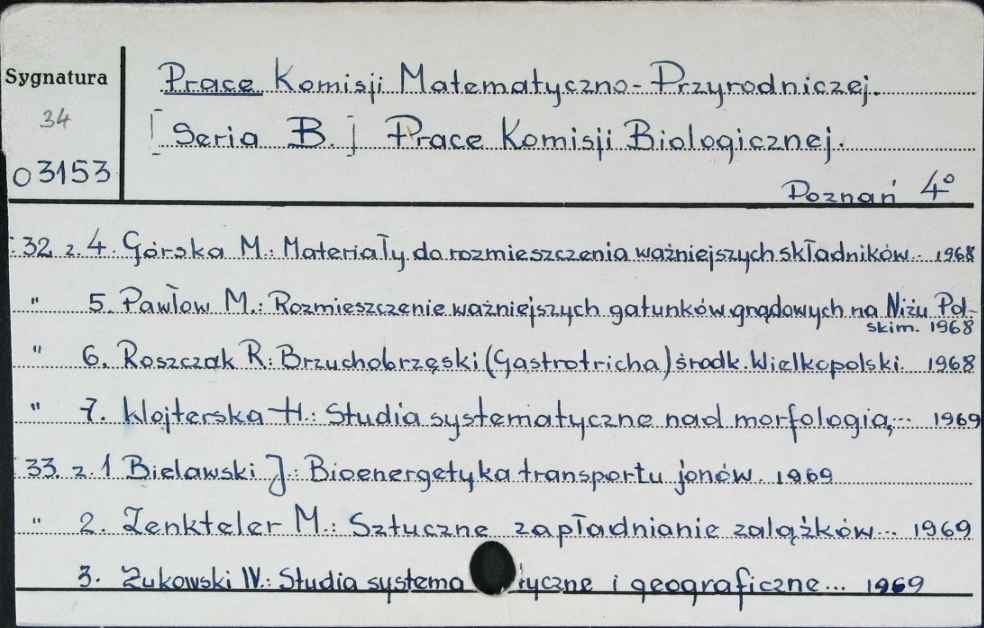 Sygnatura
34
03153
Prace Komisji Matematyczno-Przyrodniczej.
[Seria B.] Prace Komisji Biologicznej.
Poznań 4°
32 z. 4. Górska M.: Materiały do rozmieszczenia ważniejszych składników... 1968
" 5. Pawłow M.: Rozmieszczenie ważniejszych gatunków grądowych na Niżu Pol-
skim. 1968
" 6. Roszczak R.: Brzuchobrzęski (Gastrotricha) środk. Wielkopolski. 1968
" 7. Wojterska H.: Studia systematyczne nad morfologią... 1969
33. z. 1 Bielawski J.: Bioenergetyka transportu jonów. 1969
" 2. Zenkteler M.: Sztuczne zapładnianie zalążków... 1969
3. Żukowski W.: Studia systematyczne i geograficzne... 1969